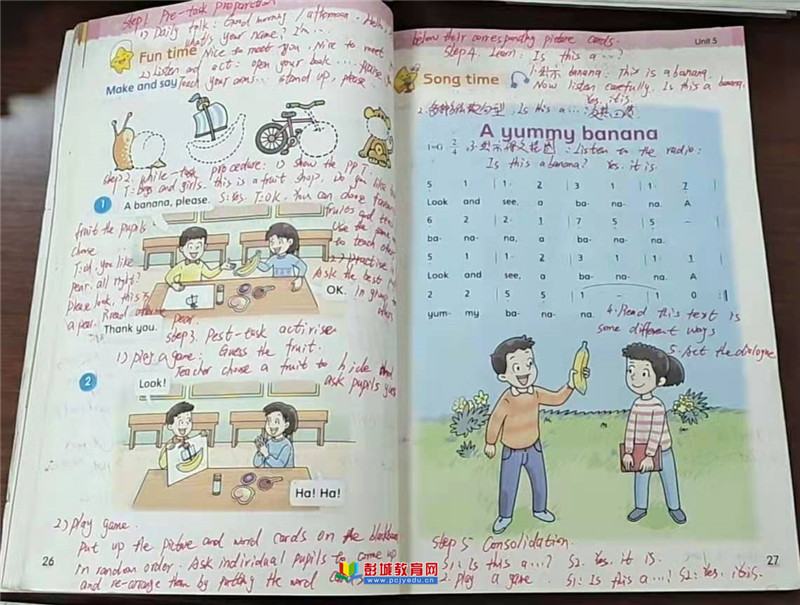 Step 1 Pre-task preparation
1) Daily talk: Good morning / afternoon. Hello,
what's your name? I'm...
Fun time
Nice to meet you. Nice to meet
2) Listen and act: open your book
Make and say
Touch your arms... stand up, please.
Step 2. While-task procedure: 1) show the ppt
T: Boys and girls. this is a fruit shop. Do you like
1 A banana, please.
S: Yes. T: OK. You can choose
fruits and
fruit the pupils
use the same
chose
to teach other
T: oh, you like
2) practise
pear. all right?
Ask the best
please look, this is
OK.
in group to
a pear. Read
pear.
Thank you.
Step 3. Post-task activise
1) play a game: Guess the fruit.
Teacher choose a fruit to hide
2
ask pupils guess
Look!
Ha! Ha!
2) play game.
Put up the picture and word cards on the blackboard
in random order. Ask individual pupils to come up
and re-arrange them by putting the word cards
26
below their corresponding picture cards.
Unit 5
Step 4. Learn: Is this a...?
Song time
1. 出示 banana: This is a banana.
Now listen carefully. Is this a banana.
Yes, it is.
2. 各种操练句型, Is this a...:
A yummy banana
1=G 2/4
3. 出示课文挂图: Listen to the radio:
Is this a banana? Yes. it is.
5 1 | 1· 2 | 3 1 | 1· 7
Look and see, a ba- na- na. A
6 2 | 2· 1 | 7 5 | 5 –
ba- na- na, a ba- na- na.
5 1 | 1· 2 | 3 1 | 1 1
Look and see, a ba- na- na. A
2 2 | 5 5 | 1 – | 1 0
yum- my ba- na- na.
4. Read this text is
some different ways
5. Act the dialogue
Step 5 Consolidation.
S1: Is this a...? S2. Yes, it is.
2. play a game. S1: Is this a...? S2: Yes. it is.
27
彭城教育网
www.pcjyedu.cn